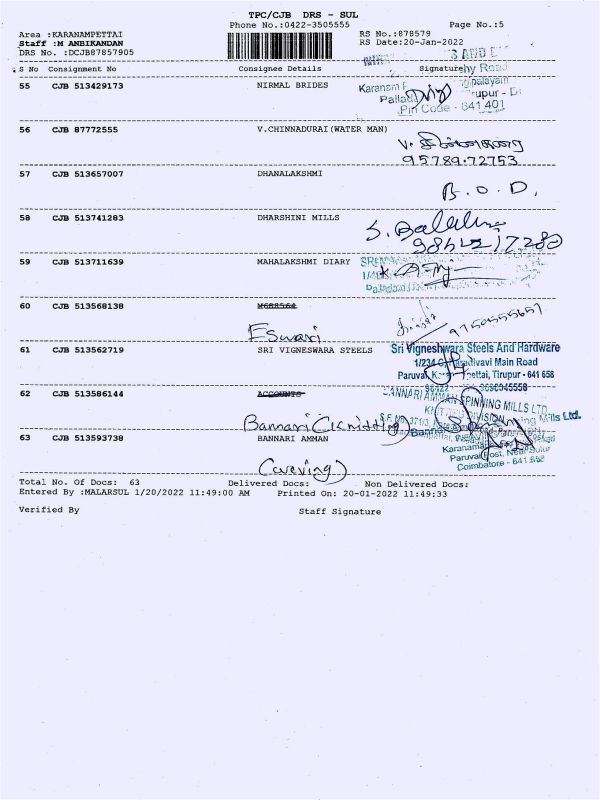 TPC/CJB DRS - SUL
Phone No.:0422-3505555 Page No.:5
Area :KARANAMPETTAI RS No.:878579
Staff :M ANBIKANDAN RS Date:20-Jan-2022
DRS No. :DCJB87857905
S No Consignment No Consignee Details Signature
55 CJB 513429173 NIRMAL BRIDES
Pin Code - 641 401
56 CJB 87772555 V.CHINNADURAI(WATER MAN)
95789-72753
57 CJB 513657007 DHANALAKSHMI
B.O.D.
58 CJB 513741283 DHARSHINI MILLS
59 CJB 513711639 MAHALAKSHMI DIARY
60 CJB 513568138 M688564
Eswari 9750555657
61 CJB 513562719 SRI VIGNESWARA STEELS Sri Vigneshwara Steels And Hardware
Main Road
Tirupur - 641 658
62 CJB 513586144 ACCOUNTS
BANNARI AMMAN SPINNING MILLS LTD
Bannari (Knitting)
63 CJB 513593738 BANNARI AMMAN
Coimbatore - 641 658
(weving)
Total No. Of Docs: 63 Delivered Docs: Non Delivered Docs:
Entered By :MALARSUL 1/20/2022 11:49:00 AM Printed On: 20-01-2022 11:49:33
Verified By Staff Signature